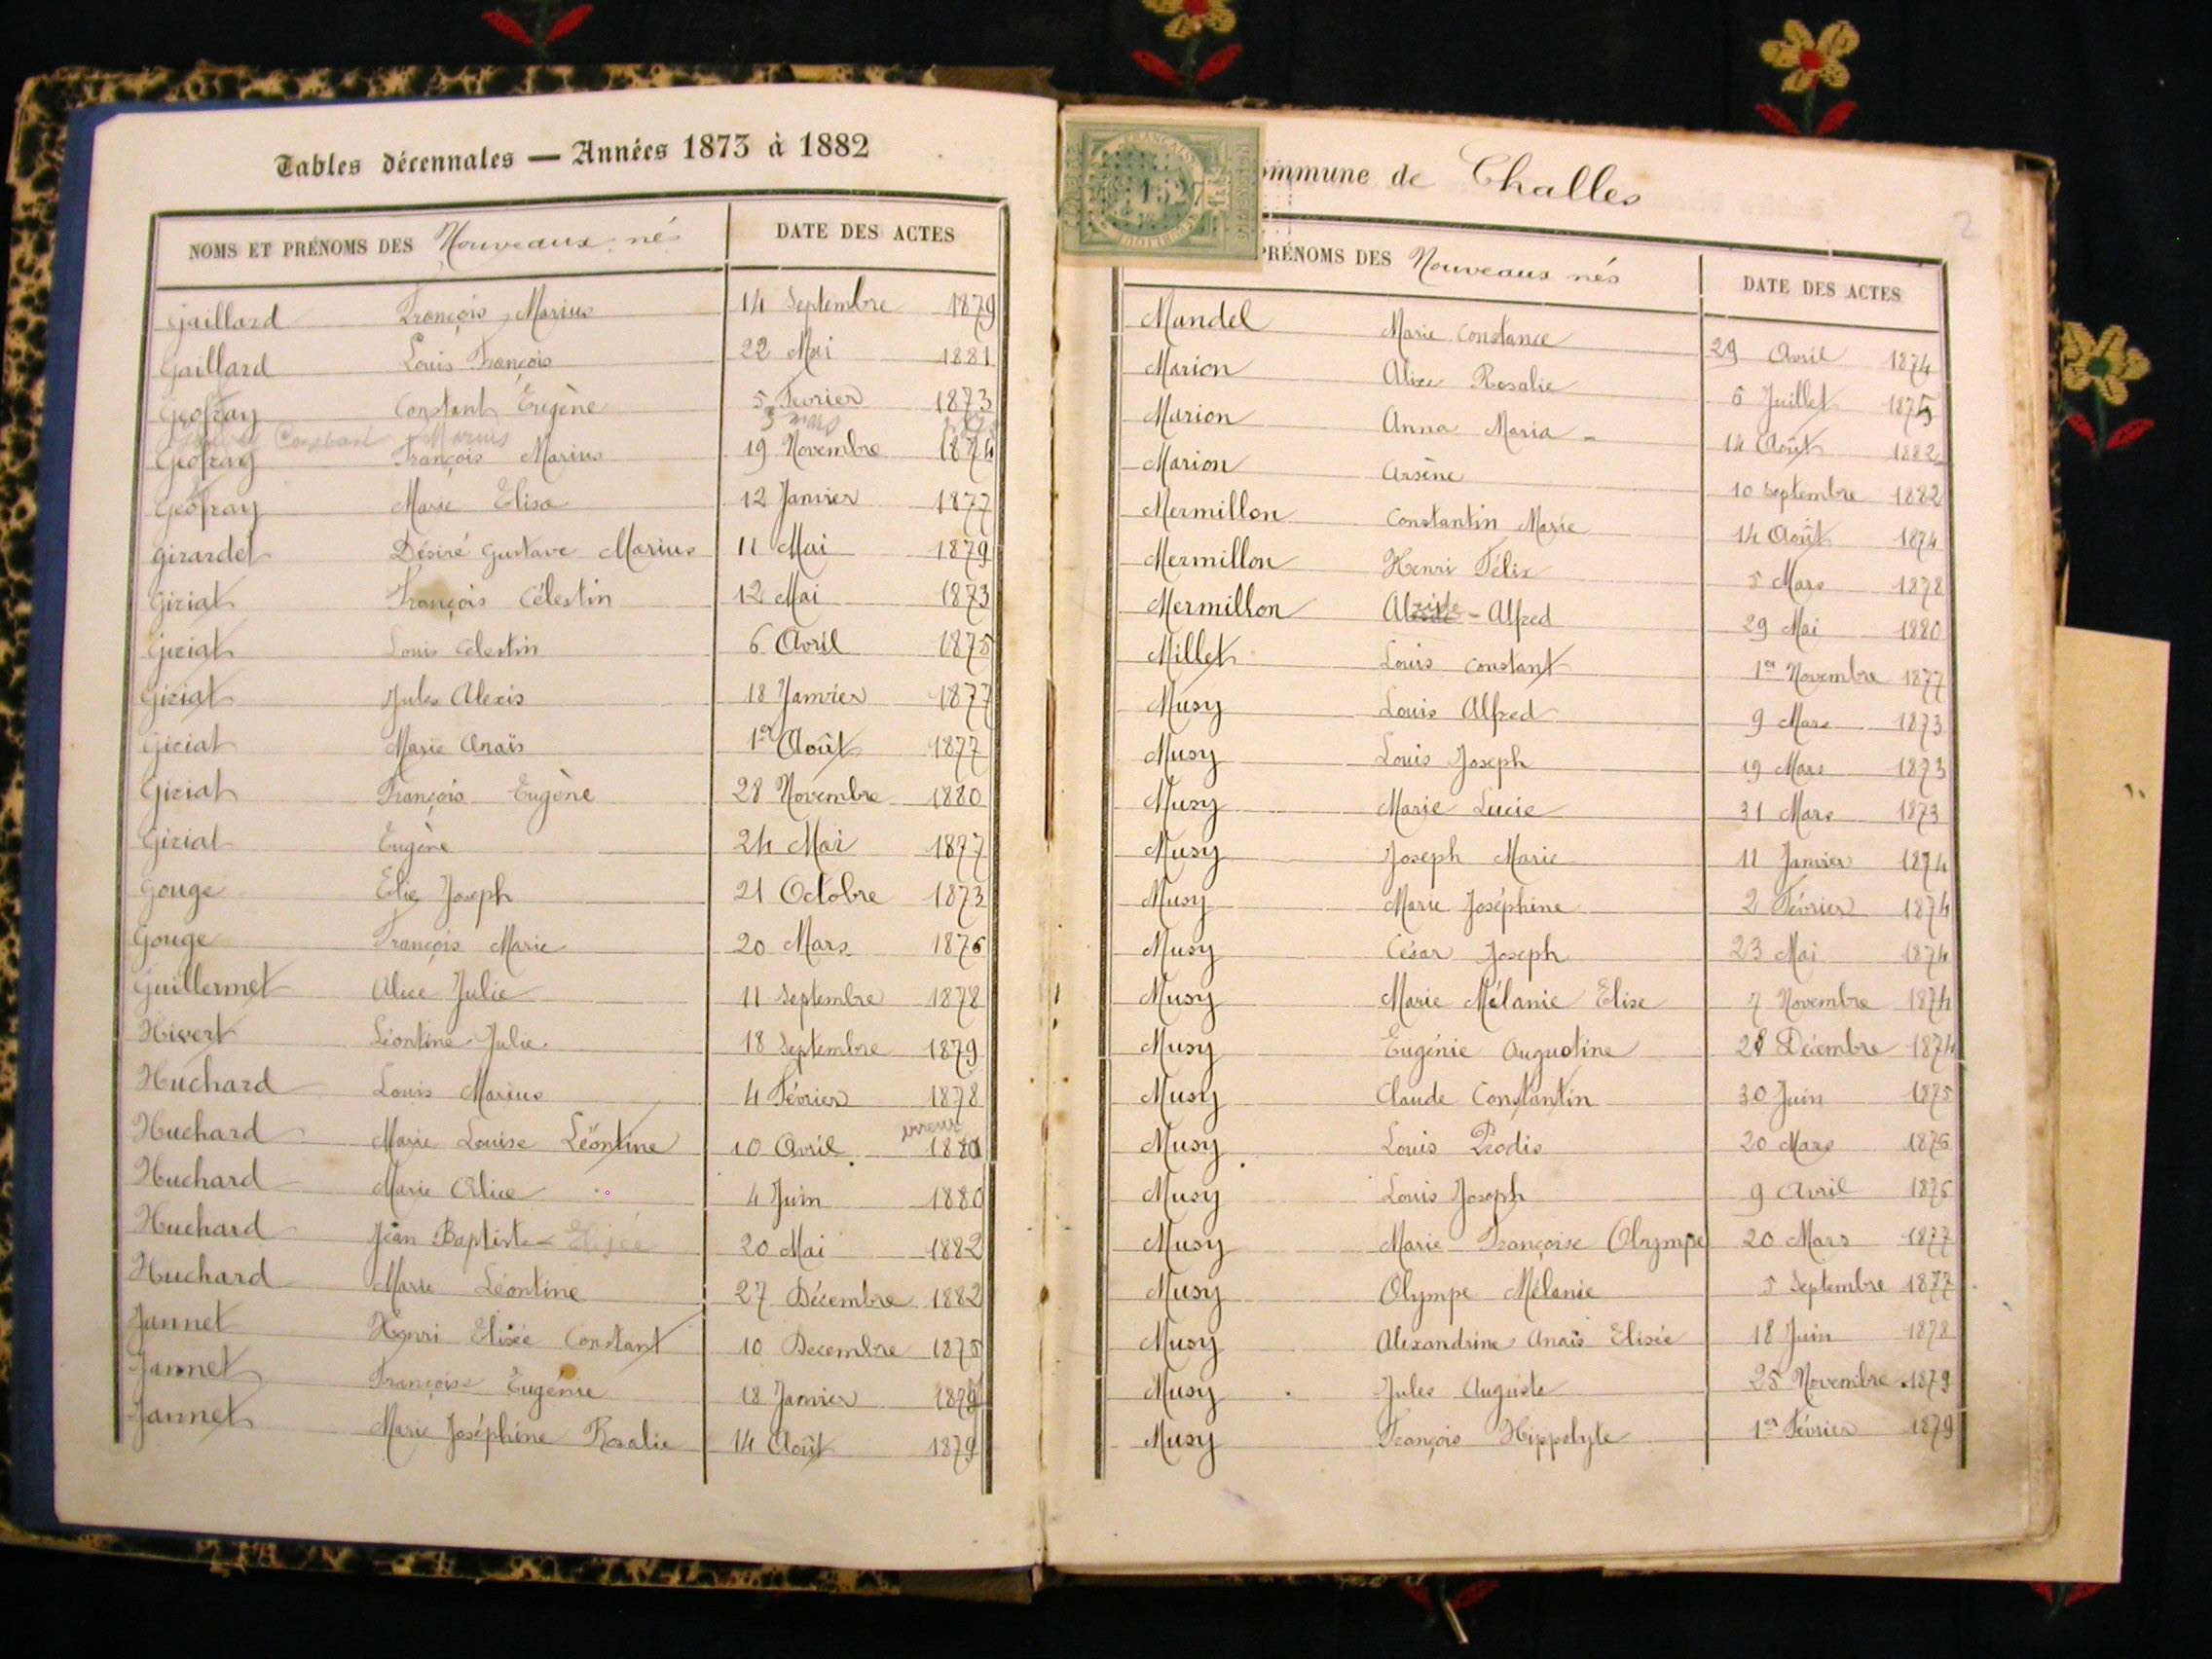 Tables décennales — Années 1873 à 1882
NOMS ET PRÉNOMS DES Nouveaux nés DATE DES ACTES
Gaillard François Marius 14 Septembre 1879
Gaillard Louis François 22 Mai 1881
Geofray Constant Eugène 5 Fevrier 1873
Constant Marius 5 mars
Geofray François Marius 19 Novembre 1874
Geofray Marie Elisa 12 Janvier 1877
Girardet Désiré Gustave Marius 11 Mai 1879
Giriat François Célestin 12 Mai 1873
Giriat Louis Celestin 6 Avril 1875
Giriat Jules Alexis 18 Janvier 1877
Giriat Marie Anaïs 1er Août 1877
Giriat François Eugène 28 Novembre 1880
Giriat Eugène 24 Mai 1877
Gouge Elie Joseph 21 Octobre 1873
Gouge François Marie 20 Mars 1876
Guillermet Alice Julie 11 Septembre 1878
Hivert Léontine Julie 18 Septembre 1879
Huchard Louis Marius 4 Février 1878
erreur
Huchard Marie Louise Léontine 10 Avril 1880
Huchard Marie Alice 4 Juin 1880
Huchard Jean Baptiste Elisée 20 Mai 1882
Huchard Marie Léontine 27 Décembre 1882
Jannet Henri Elisée Constant 10 Decembre 1875
Jannet Françoise Eugénie 18 Janvier
Jannet Marie Joséphine Rosalie 14 Août 1879
Commune de Challes
2
PRÉNOMS DES Nouveaux nés DATE DES ACTES
Mandel Marie Constance 29 Avril 1874
Marion Alice Rosalie 6 Juillet 1875
Marion Anna Maria 14 Août 1882
Marion Arsène 10 Septembre 1882
Mermillon Constantin Marie 14 Août 1874
Mermillon Henri Félix 5 Mars 1878
Mermillon Alfred 29 Mai 1880
Millet Louis Constant 1er Novembre 1877
Musy Louis Alfred 9 Mars 1873
Musy Louis Joseph 19 Mars 1873
Musy Marie Lucie 31 Mars 1873
Musy Joseph Marie 11 Janvier 1874
Musy Marie Joséphine 2 Février 1874
Musy César Joseph 23 Mai 1874
Musy Marie Mélanie Elise 7 Novembre 1874
Musy Eugénie Augustine 28 Décembre 1874
Musy Claude Constantin 30 Juin 1875
Musy Louis Prodis 20 Mars 1876
Musy Louis Joseph 9 Avril 1876
Musy Marie Françoise Olympe 20 Mars 1877
Musy Olympe Mélanie 5 Septembre 1877
Musy Alexandrine Anaïs Elisée 18 Juin 1878
Musy Jules Auguste 25 Novembre 1879
Musy François Hippolyte 1er Février 1879